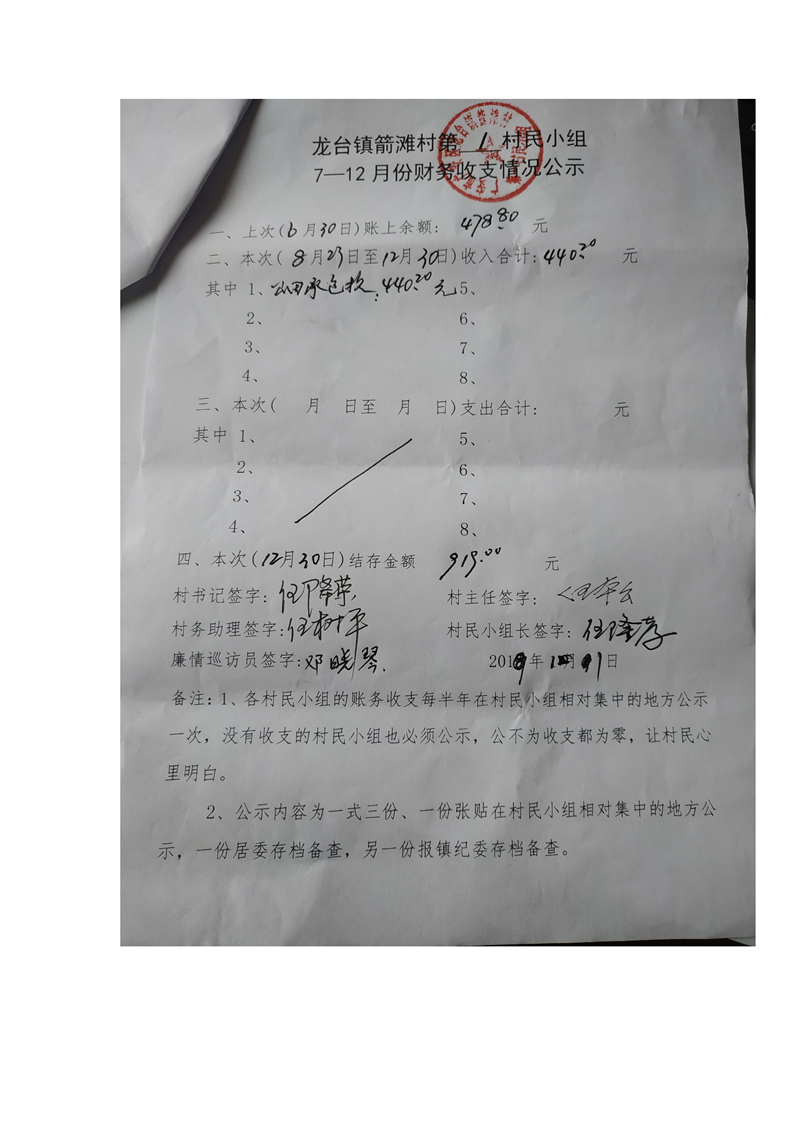 龙台镇箭滩村第 1 村民小组
7—12月份财务收支情况公示
一、上次(6月30日)账上余额: 478.80 元
二、本次(8月23日至12月30日)收入合计:440.20 元
其中 1、山田承包款:440.20元 5、
2、 6、
3、 7、
4、 8、
三、本次( 月 日至 月 日)支出合计: 元
其中 1、 5、
2、 6、
3、 7、
4、 8、
四、本次(12月30日)结存金额 919.00 元
村书记签字: 村主任签字:
村务助理签字:任树平 村民小组长签字:
廉情巡访员签字:邓晓琴.
备注:1、各村民小组的账务收支每半年在村民小组相对集中的地方公示
一次,没有收支的村民小组也必须公示,公不为收支都为零,让村民心
里明白。
2、公示内容为一式三份、一份张贴在村民小组相对集中的地方公
示,一份居委存档备查,另一份报镇纪委存档备查。